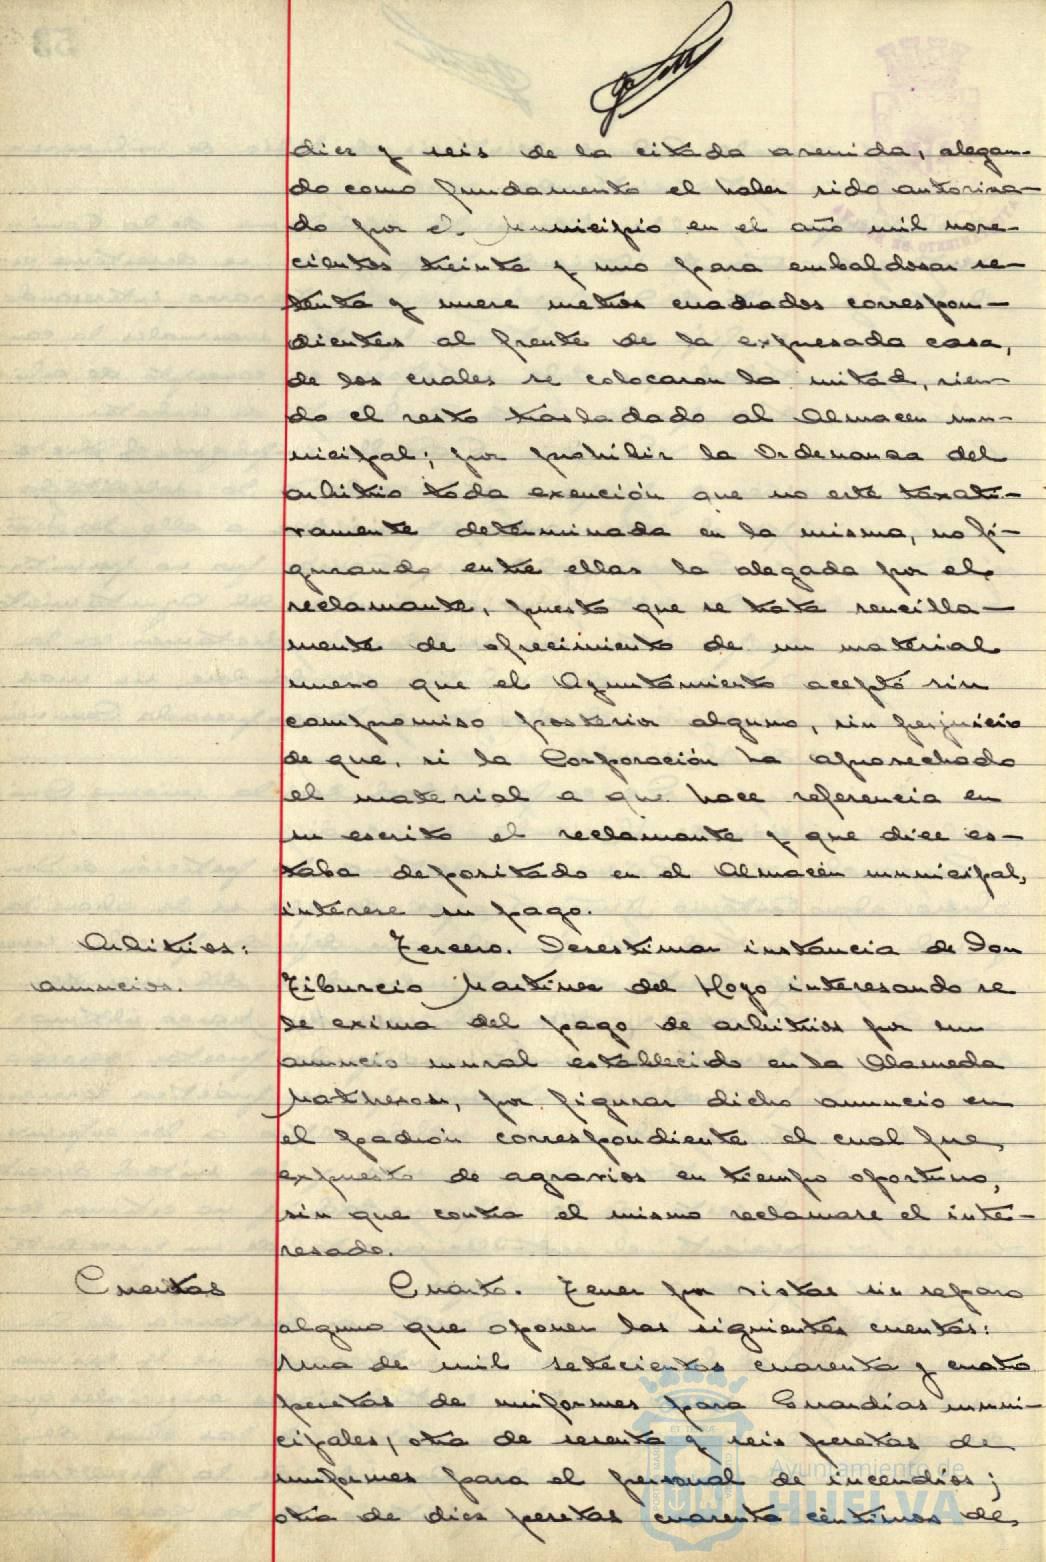 diez y seis de la citada avenida, alegan-
do como fundamento el haber sido autoriza-
do por el Municipio en el año mil nove-
cientos treinta y uno para embaldosar se-
tenta y nueve metros cuadrados correspon-
dientes al frente de la expresada casa,
de los cuales se colocaron la mitad, sien-
do el resto trasladado al Almacen mu-
nicipal; por prohibir la Ordenanza del
arbitrio toda exención que no esté taxati-
vamente determinada en la misma, no fi-
gurando entre ellas la alegada por el
reclamante, puesto que se trata sencilla-
mente de ofrecimiento de un material
nuevo que el Ayuntamiento aceptó sin
compromiso posterior alguno, sin perjuicio
de que, si la Corporación ha aprovechado
el material a que hace referencia en
su escrito el reclamante y que dice es-
taba depositado en el Almacén municipal,
interese su pago.
Arbitrios:
anuncios.
Tercero. Desestimar instancia de Don
Tiburcio Martinez del Hoyo interesando se
le exima del pago de arbitrios por un
anuncio mural establecido en la Alameda
por figurar dicho anuncio en
el padrón correspondiente el cual fue
expuesto de agravios en tiempo oportuno,
sin que contra el mismo reclamase el inte-
resado.
Cuentas
Cuarto. Tener por vistas sin reparo
alguno que oponer las siguientes cuentas:
Una de mil setecientas cuarenta y cuatro
pesetas de uniformes para Guardias muni-
cipales, otra de sesenta y seis pesetas de
uniformes para el personal de incendios;
otra de diez pesetas cuarenta céntimos de
Ayuntamiento de
HUELVA